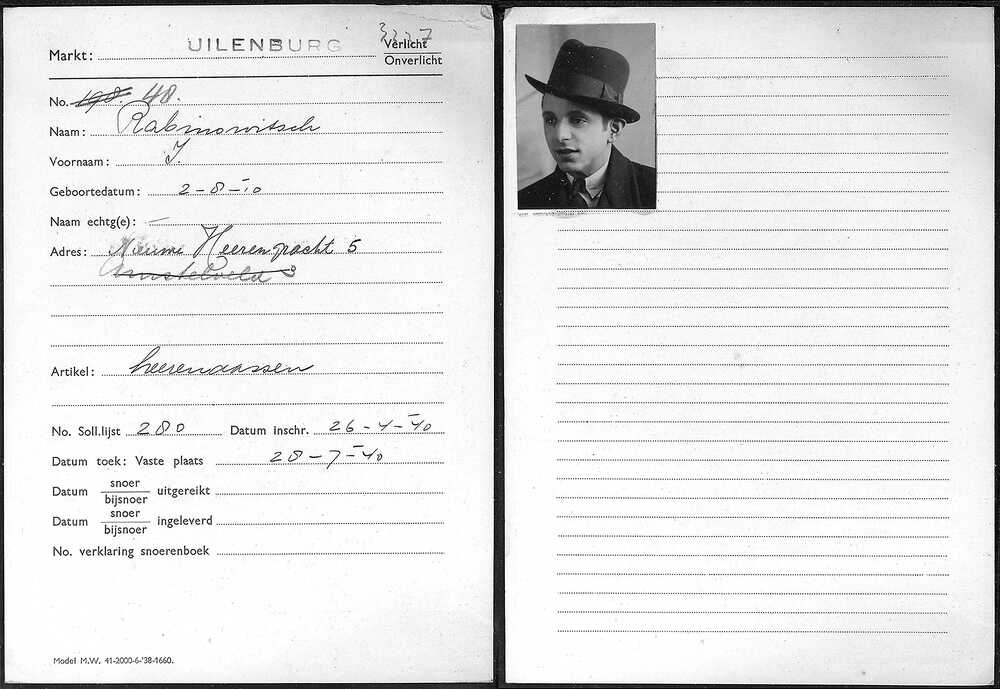 3227
Markt: UILENBURG Verlicht
Onverlicht
No. 198. 48.
Naam: Rabinowitsch
Voornaam: J.
Geboortedatum: 2-8-10
Naam echtg(e): —
Adres: Nieuwe Heerengracht 5
Amstelveld 3
Artikel: heerenjassen
No. Soll.lijst 280 Datum inschr. 26-4-40
Datum toek: Vaste plaats 28-7-40
Datum snoer uitgereikt
bijsnoer
Datum snoer ingeleverd
bijsnoer
No. verklaring snoerenboek
Model M.W. 41-2000-6-'38-1660.